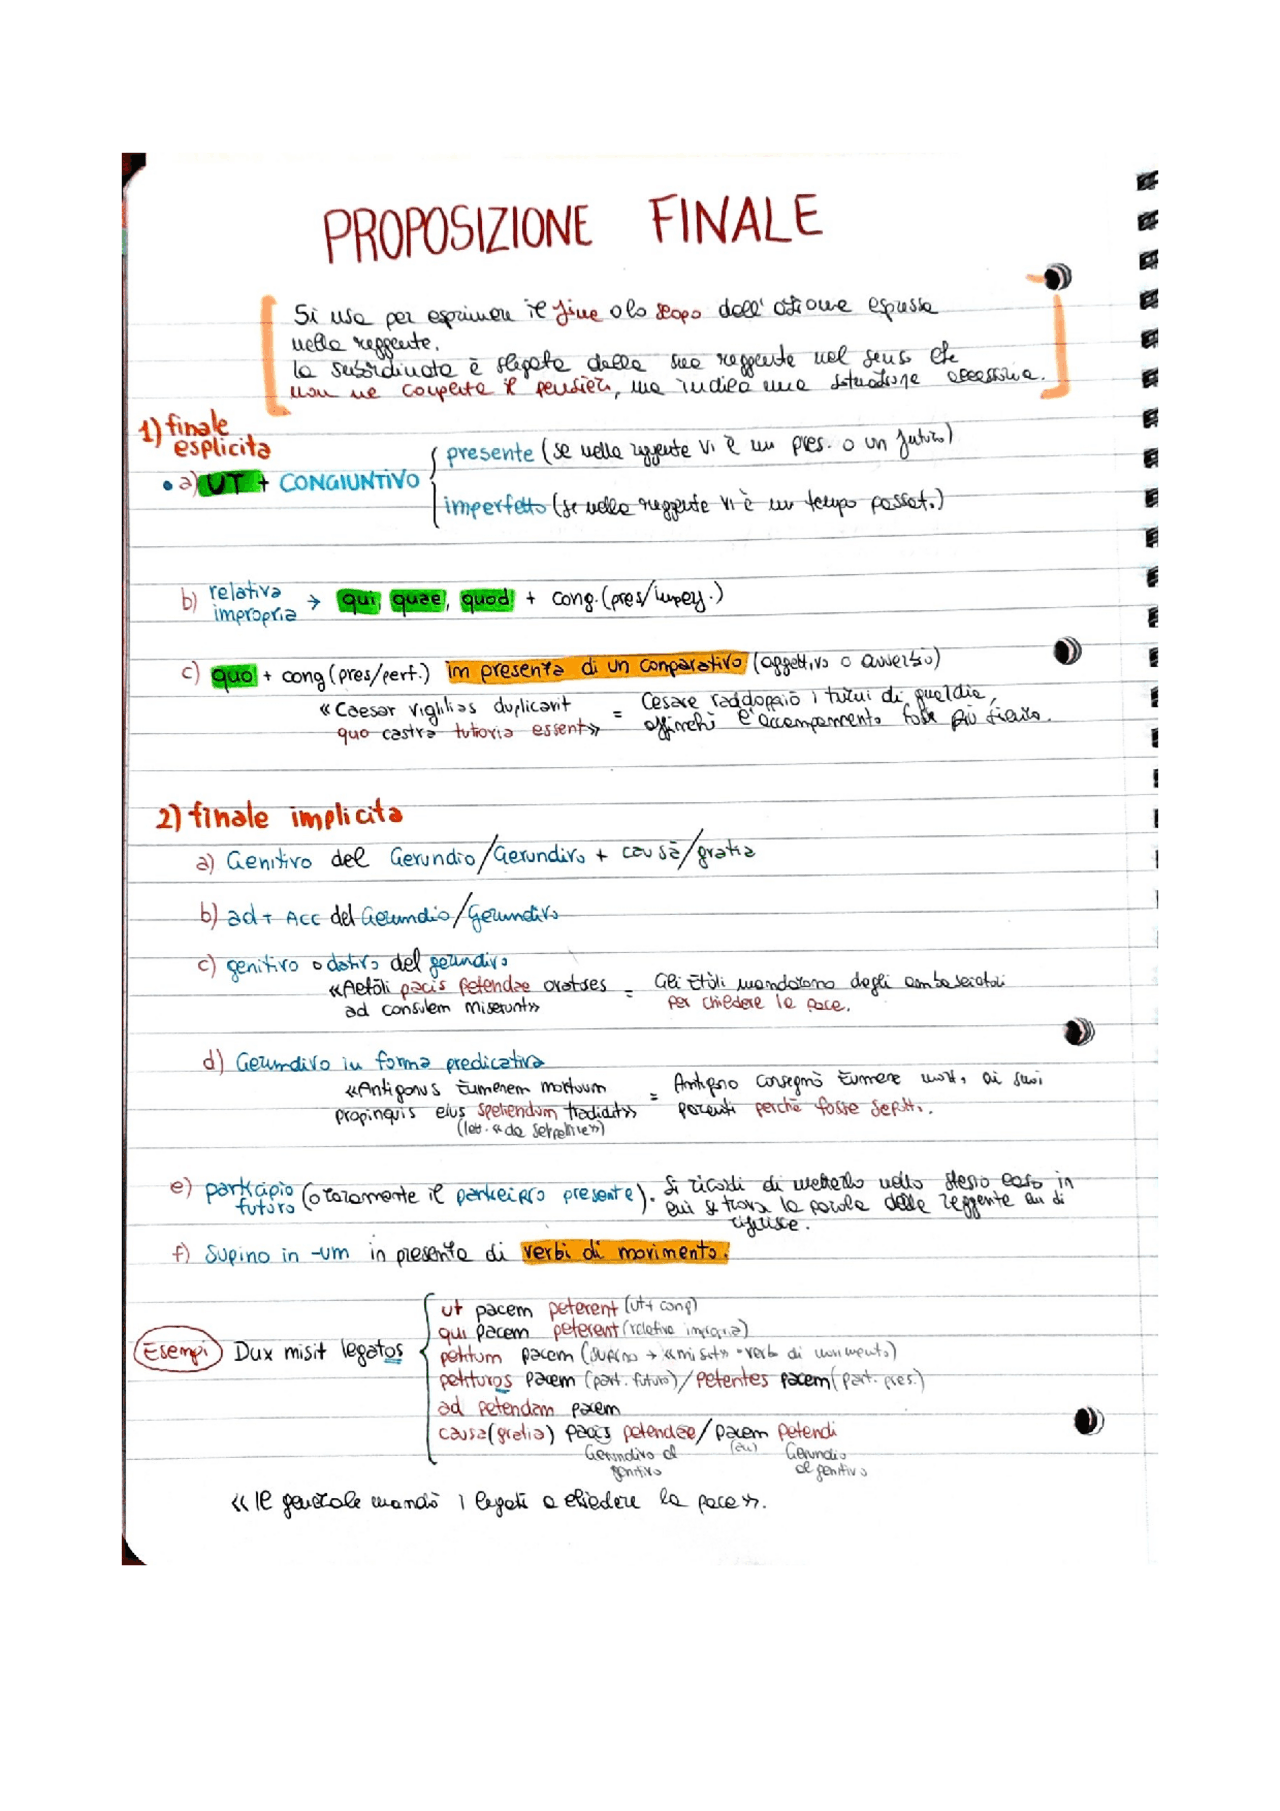 PROPOSIZIONE FINALE
Si usa per esprimere il fine o lo scopo dell'azione espressa
nella reggente.
la subordinata è slegata dalla sua reggente nel senso che
non ne completa il pensiero, ma indica una situazione accessoria.
1) finale
esplicita
• a) UT + CONGIUNTIVO
presente (se nella reggente vi è un pres. o un futuro)
imperfetto (se nella reggente vi è un tempo passato.)
b) relativa
impropria → qui, quae, quod + cong. (pres/imperf.)
c) quo + cong (pres/perf.) im presenza di un comparativo (aggettivo o avverbio)
«Caesar vigilias duplicavit = Cesare raddoppiò i turni di guardia,
quo castra tutiora essent» affinchè l'accampamento fosse più sicuro.
2) finale implicita
a) Genitivo del Gerundio/Gerundivo + causā/gratia
b) ad + ACC del Gerundio/Gerundivo
c) genitivo o dativo del gerundivo
«Aetōli pacis petendae oratores = Gli Etòli mandarono degli ambasciatori
ad consulem miserunt» per chiedere la pace.
d) Gerundivo in forma predicativa
«Antigonus Eumenem mortuum = Antigono consegnò Eumene morto ai suoi
propinquis eius sepeliendum tradidit» parenti perchè fosse sepolto.
(let. «da seppellire»)
e) participio
futuro (o raramente il participio presente). Si ricordi di metterlo nello stesso caso in
cui si trova la parola della reggente cui si
riferisce.
f) Supino in -um in presenza di verbi di movimento.
Esempi Dux misit legatos
ut pacem peterent (ut + cong)
qui pacem peterent (relativa impropria)
petitum pacem (supino → «misit» = verbo di movimento)
petituros pacem (part. futuro)/petentes pacem (part. pres.)
ad petendam pacem
causa (gratia) pacis petendae/pacem petendi
Gerundivo al Gerundio
genitivo al genitivo
«Il generale mandò i legati a chiedere la pace».